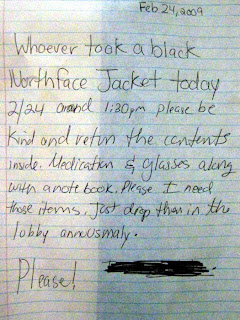 Feb 24, 2009
Whoever took a black
Northface Jacket today
2/24 arond 1:30pm please be
kind and retun the contents
inside. Medication & glasses along
with a note book. Please I need
those items. Just drop them in the
lobby annousmaly.
Please!